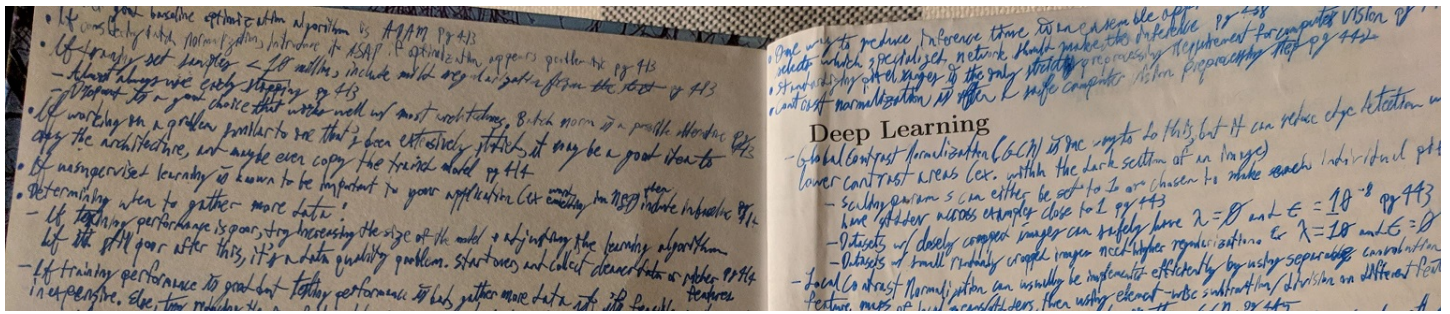 good baseline optimization algorithm is ADAM pg 413
• If considering batch normalization, introduce it ASAP if optimization appears problematic pg 413
• If training set samples < 10 million, include mild regularization from the start pg 413
- Almost always use early stopping pg 413
- Dropout is a good choice that works well w/ most architectures. Batch norm is a possible alternative pg 413
• If working on a problem similar to one that's been extensively studied, it may be a good idea to
copy the architecture, and maybe even copy the trained model pg 414
• If unsupervised learning is known to be important to your application (ex word embedding in NLP) then include in baseline pg 414
• Determining when to gather more data:
- If training performance is poor, try increasing the size of the model + adjusting the learning algorithm
If it's still poor after this, it's a data quality problem. Start over and collect cleaner data or richer features pg 414
- If training performance is good but testing performance is bad, gather more data if it's feasible
inexpensive. Else, try reducing the
• One way to reduce inference time is to
selector which specialized network should make the inference pg 438
• Standardizing pixel ranges is the only strictly preprocessing requirement for computer vision pg
• Contrast normalization is often a safe computer vision preprocessing step pg 442
Deep Learning
- Global Contrast Normalization (GCN) is one way to do this, but it can reduce edge detection
lower contrast areas (ex. within the dark section of an image)
- scaling param s can either be set to 1 or chosen to make each individual
have stddev across examples close to 1 pg 443
- Datasets w/ closely cropped images can safely have λ=0 and ε=10⁻⁸ pg 443
- Datasets w/ small randomly cropped images need higher regularization. λ=10 and ε=0
- Local Contrast Normalization can usually be implemented efficiently by using separable convolution
feature maps of local means/stddevs, then using element-wise subtraction/division on different